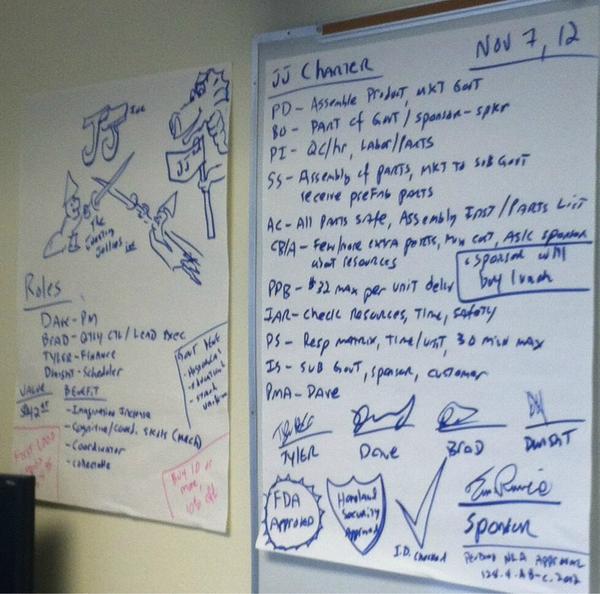 JJ Inc
JJ
The
Jousting
Jollies
Roles
DAVE-PM
BRAD-QTLY CTL/LEAD EXEC
TYLER-FINANCE
DWIGHT-Scheduler
VALUE
BENEFIT
-Imagination Increase
-Cognitive/Coord. Skills
-Coordinator
-Collectable
GOVT
uniform
First 1,000
Buy 10 or
more,
10% off
JJ CHARTER
NOV 7, 12
PD- Assemble Product, MKT GOVT
BO- PART of GOVT/sponsor-spkr
PI- QC/hr, Labor/PARTS
SS- Assembly of PARTS, MKT TO SUB GOVT
receive prefab parts
AC-All PARTS SAFE, Assembly INST/PARTS LIST
CB/A- Few/more extra parts, ASK sponsor
want resources
*sponsor will
buy lunch
PPB- $32 max per unit deliv
IAR- check resources, TIME, SAFETY
PS- Resp matrix, TIME/UNIT, 30 min max
IS- SUB GOVT, sponsor, customer
PMA- DAVE
TYLER
Dave
BRAD
DWIGHT
FDA
APPROVED
Homeland
Security
Approved
I.D. Checked
Sponsor